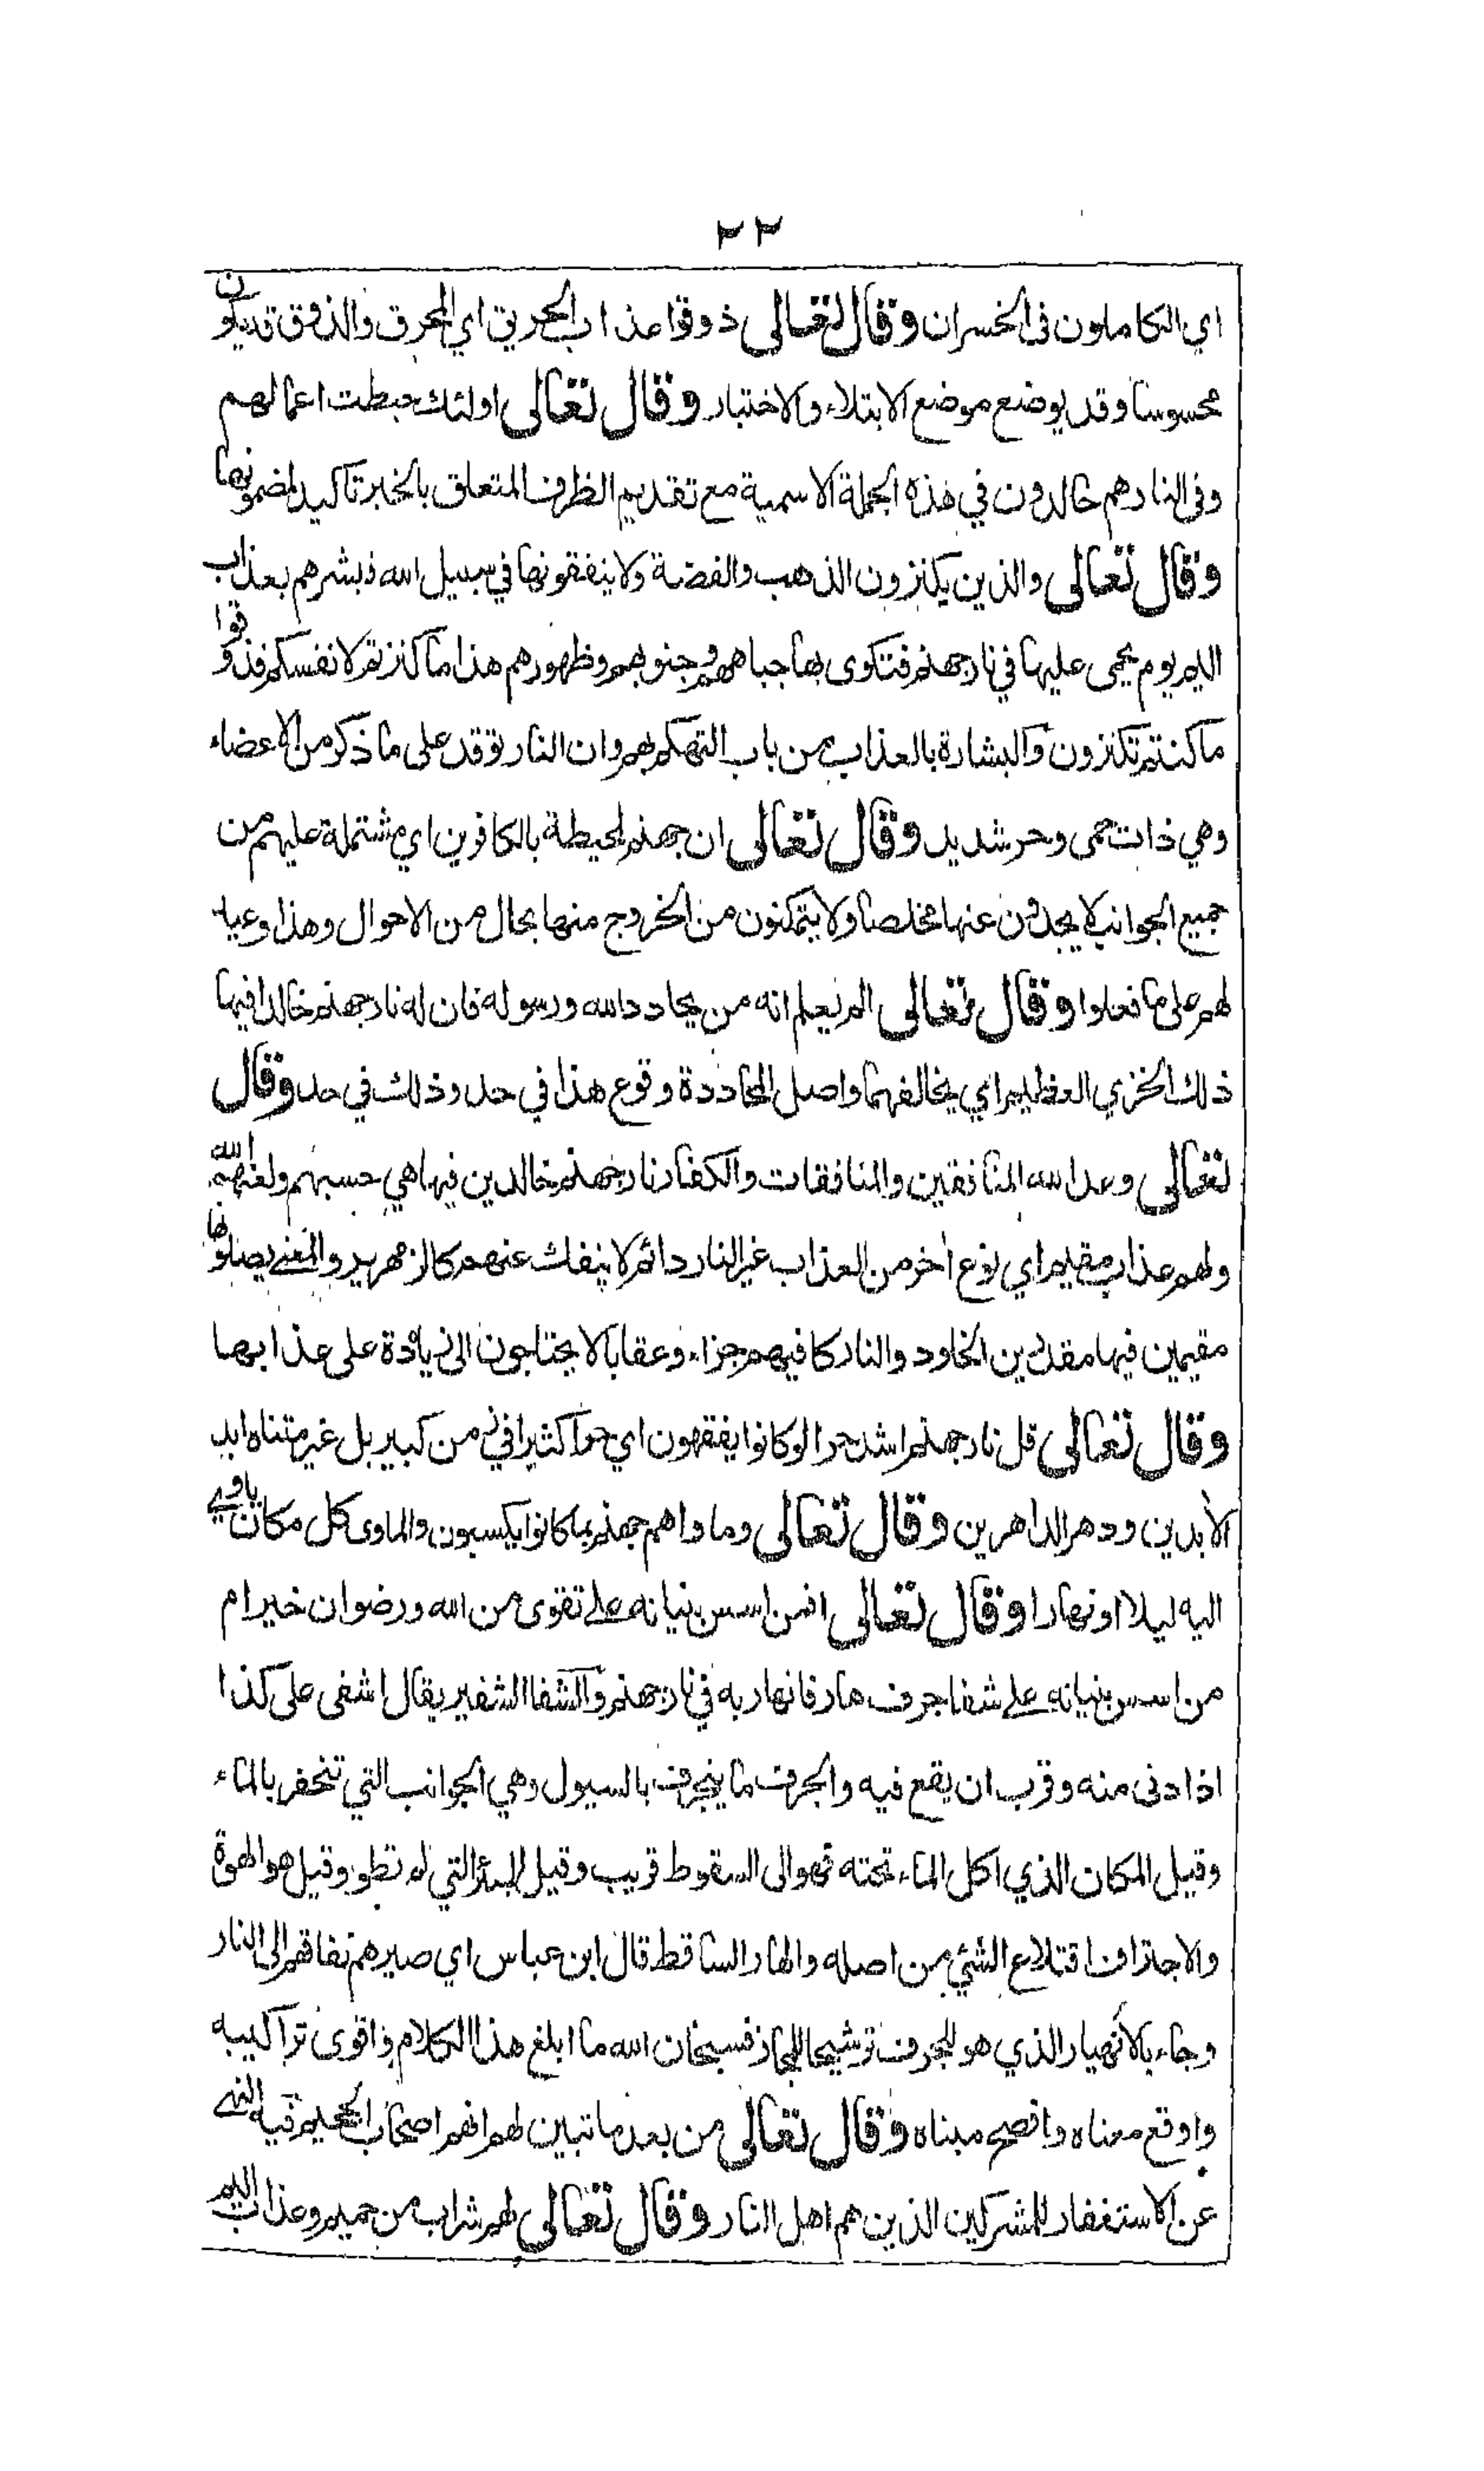 ٢٢
اي الكاملون في الخسران وقال تعالى ذوقوا عذاب الحريق اي المحرق والذوق قد يكون
محسوسا وقد يوضع موضع الابتلاء والاختبار وقال تعالى اولئك حبطت اعمالهم
وفي النار هم خالدون في هذه الجملة الاسمية مع تقديم الظرف المتعلق بالخبر تاكيد لمضمونها
وقال تعالى والذين يكنزون الذهب والفضة ولا ينفقونها في سبيل الله فبشرهم بعذاب
اليم يوم يحمى عليها في نار جهنم فتكوى بها جباههم وجنوبهم وظهورهم هذا ما كنزتم لانفسكم فذوقوا
ما كنتم تكنزون والبشارة بالعذاب من باب التهكم بهم وان النار توقد على ما ذكر من الاعضاء
وهي ذات حمى وحر شديد وقال تعالى ان جهنم لمحيطة بالكافرين اي مشتملة عليهم من
جميع الجوانب لا يجدون عنها مخلصا ولا يتمكنون من الخروج منها بحال من الاحوال وهذا وعيد
لهم على ما فعلوا وقال تعالى الم يعلم انه من يحادد الله ورسوله فان له نار جهنم خالدا فيها
ذلك الخزي العظيم اي يخالفهما واصل المحاددة وقوع هذا في حد وذلك في حد وقال
تعالى وعد الله المنافقين والمنافقات والكفار نار جهنم خالدين فيها هي حسبهم ولعنهم الله
ولهم عذاب مقيم اي نوع أخر من العذاب غير النار دائم لا ينفك عنهم كالزمهرير والمعنے يصلونها
مقيمين فيها مقدرين الخلود والنار كافيهم جزاء وعقابا لا يحتاجون الى زيادة على عذابها
وقال تعالى قل نار جهنم اشد حرا لو كانوا يفقهون اي حرا كثيرا في زمن كبير بل غير متناه ابد
الأبدين ودهر الداهرين وقال تعالى وماواهم جهنم بما كانوا يكسبون والماوى كل مكان ياوي
اليه ليلا او نهارا وقال تعالى افمن اسس بنيانه علے تقوى من الله ورضوان خير ام
من اسس بنيانه علے شفا جرف هار فانهار به في نار جهنم والشفا الشفير يقال اشفى على كذا
اذا دنى منه وقرب ان يقع فيه والجرف ما ينجرف بالسيول وهي الجوانب التي تنحفر بالماء
وقيل المكان الذي اكل الماء تحته فهو الى السقوط قريب وقيل البئر التي لم تطو وقيل هو الهوة
والاجتراف اقتلاع الشئي من اصله والهار الساقط قال ابن عباس اي صيرهم نفاقهم الى النار
وجاء بالانهيار الذي هو للجرف ترشيحا للمجاز فسبحان الله ما ابلغ هذا الكلام واقوى تراكيبه
واوقع معناه وافصح مبناه وقال تعالى من بعد ما تبين لهم انهم اصحاب الجحيم فيه النهے
عن الاستغفار للمشركين الذين هم اهل النار وقال تعالى لهم شراب من حميم وعذاب اليم